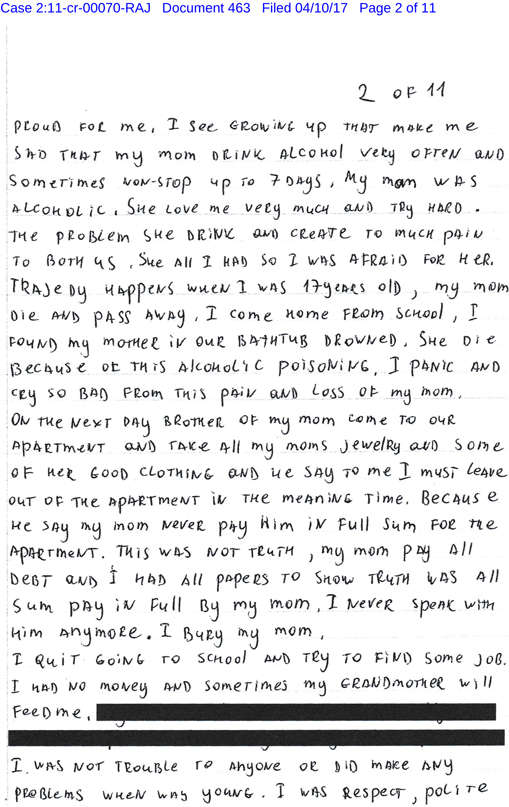 Case 2:11-cr-00070-RAJ Document 463 Filed 04/10/17 Page 2 of 11
2 OF 11
PROUD FOR me. I see GROWING up THAT make me
SAD THAT my mom DRINK ALCOHOL very OFTEN AND
Sometimes NON-STOP up TO 7 DAYS, My mom WAS
ALCOHOLIC. SHE LOVE me very much AND TRy HARD.
THE PROBLEM SHE DRINK AND CREATE TO much PAIN
TO BOTH US. SHE All I HAD SO I WAS AFRAID FOR HER.
TRAJEDY HAPPENS WHEN I WAS 17 years OLD, my mom
DIE AND PASS AWAY. I come Home FROM SCHOOL, I
FOUND my mother in OUR BATHTUB DROWNED. SHE DIE
BECAUSE OF THIS ALCOHOLIC POISONING. I PANIC AND
CRY SO BAD FROM THIS PAIN AND LOSS OF my mom.
ON THE NEXT DAY BROTHER OF my mom come TO OUR
APARTMENT AND TAKE All my moms JEWELRY AND Some
OF HER GOOD CLOTHING AND HE SAY TO me I MUST LEAVE
OUT OF THE APARTMENT IN THE MEANING TIME. BECAUSE
HE SAY my mom NEVER PAY Him IN Full Sum FOR THE
APARTMENT. THIS WAS NOT TRUTH, my mom PAY All
DEBT AND I HAD All PAPERS TO SHOW TRUTH WAS All
Sum PAY in Full By my mom. I NEVER SPEAK WITH
Him ANYMORE. I BURY my mom.
I QUIT GOING TO SCHOOL AND TRY TO FIND Some JOB.
I HAD NO MONEY AND SOMETIMES my GRANDMOTHER will
FEED me.
I WAS NOT TROUBLE TO ANYONE OR DID MAKE ANY
PROBLEMS WHEN WAY YOUNG. I WAS RESPECT, POLITE